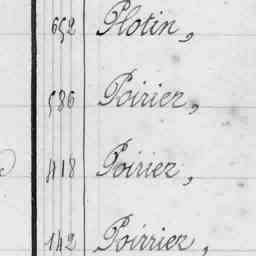 652 Plotin,
586 Poirier,
418 Poirier,
142 Poirrier,